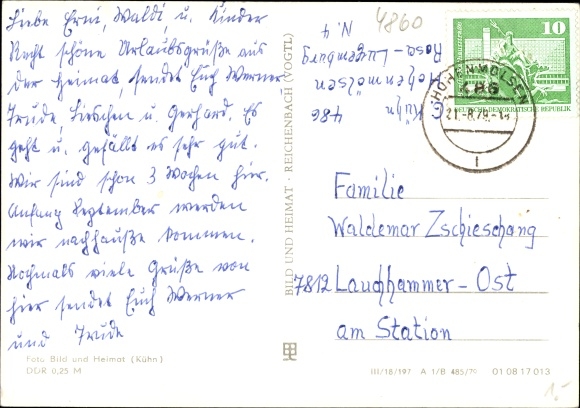 Liebe Erni, Waldi, u. Kinder
Recht schöne Urlaubsgrüße aus
der Heimat, sendet Euch Werner
Trude, Lieschen u. Gerhard. Es
geht u. gefällt es sehr gut.
Wir sind schon 3 Wochen hier.
Anfang September werden
wir nachhauße kommen.
Nochmals viele Grüße von
hier sendet Euch Werner
und Trude
Foto Bild und Heimat (Kühn)
DDR 0,25 M
BILD UND HEIMAT · REICHENBACH (VOGTL)
4860
Kühn
486
Hohenmölsen
Rosa-Luxemburg
N. 4
10
DEUTSCHE DEMOKRATISCHE REPUBLIK
HOHENMÖLSEN
486
21.-8.79.-18
1
Familie
Waldemar Zschieschang
7812 Lauchhammer-Ost
am Station
III/18/197 A 1/B 485/79 01 08 17 013
1,-